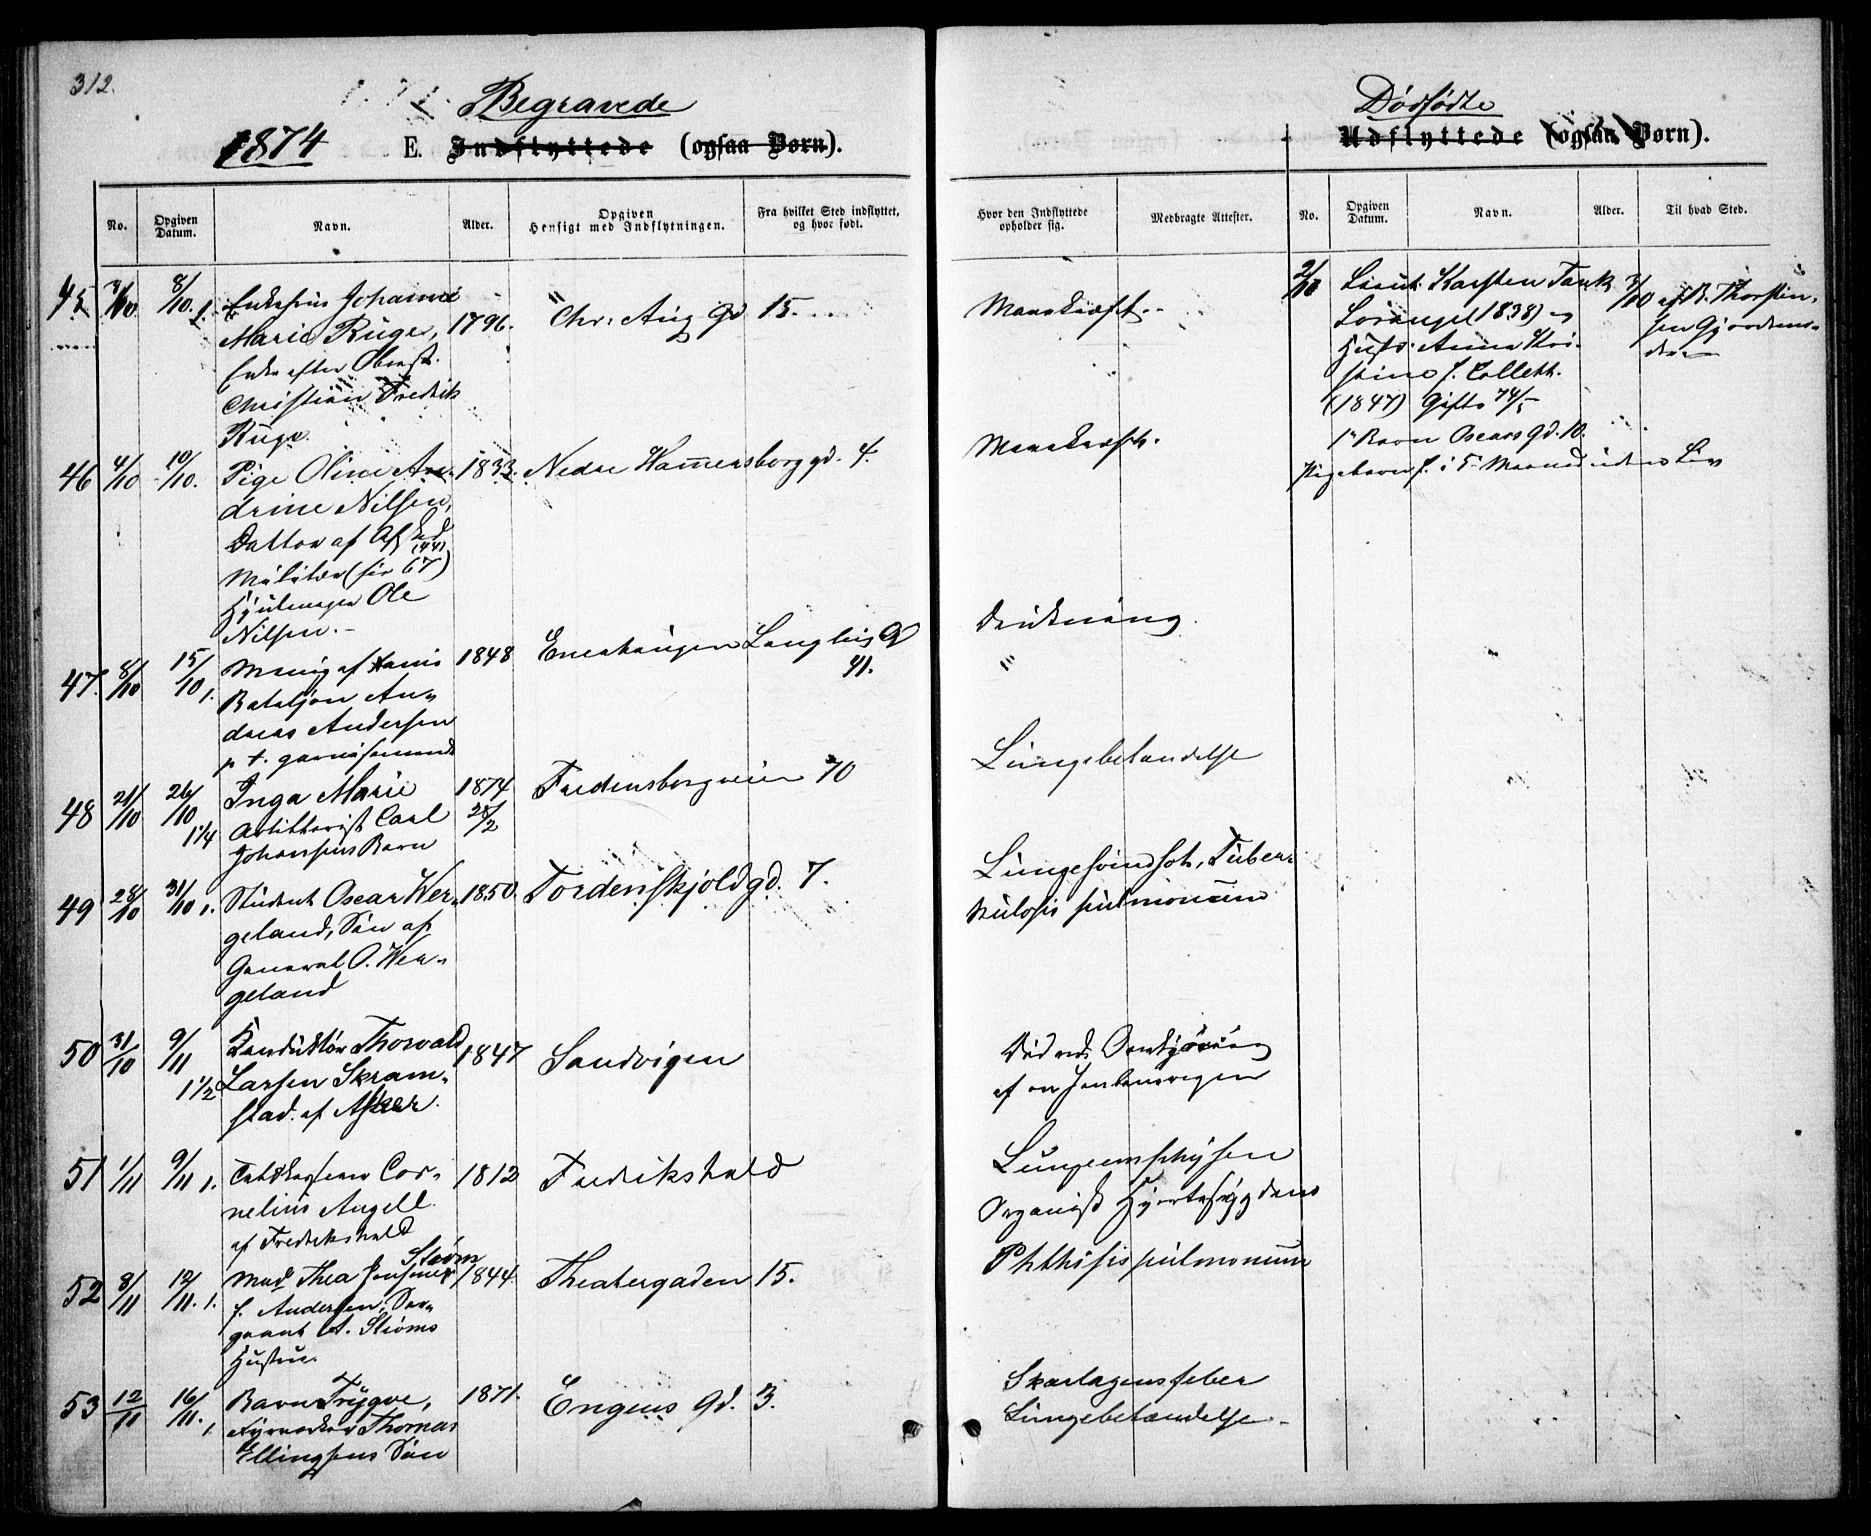 312.
Begravede
1874
E. Indflyttede (ogsaa Børn).
No.
Opgiven Datum.
Navn.
Alder.
Opgiven Hensigt med Indflytningen.
Fra hvilket Sted indflyttet, og hvor født.
45 3/10 8/10. 1. Enkefrue Johanne 1796. Chr. Aug Gd 15.
Marie Ruge,
Enke efter Oberst.
Christian Fredrik
Ruge.
46 4/10 10/10. Pige Oline An- 1833. Nedre Hammersborg gd. 4.
drine Nilsen,
Datter af Afsked
Militær (før 67)
Hjulmager Ole
Nilsen.-
47. 8/10 15/10 1. Menig af 1848 Enerhaugen Langleiks G
41.
Bataljon An-
dreas Andersen
p t. garnisonerende
48 21/10 26/10 1 1/4 Inga Marie 1874 Fredensborgveien 70
Artillerist Carl 28/2
Johansens Barn
49 28/10 31/10 1. Student Oscar Wer- 1850. Tordenskjoldgd. 7.
geland, Søn af
General O. Wer-
geland
50 31/10 9/11 1 1/2 Konduktør Thorvald 1847 Sandvigen
Larsen Skram-
stad. af Asker.
51 1/11 9/11 1. Cor- 1812 Fredrikshald
nelius Angell
af Fredrikshald
52 8/11 12/11. 1. Mad Thea Jensine Strøm 1844. Theatergaden 15.
f. Andersen, Ser-
geant A. Strøms
Hustru.
53 12/11 16/11. 1. Barn Trygve, 1871. Engens Gd. 3.
Fyrværker Thomas
Ellingsens Søn
Dødfødte
Udflyttede (ogsaa Børn).
Hvor den Indflyttede opholder sig.
Medbragte Attester.
No.
Opgiven Datum.
Navn.
Alder.
Til hvad Sted.
Marskræft.
Marskræft.
Drukning.
"
Lungebetændelse
Lungesvindsot, Tuber-
kulosis pulmonum
Død ved Overkjøring
af en Jernbanevogn
Lungeemphysem
Organisk Hjertesygdom
Phthisis pulmonum
Skarlagensfeber
Lungebetændelse -
2/10 Lieut. Karsten Tank 3/10 af B. Thorstin-
Lorange (1838) og sen Gjordemo-
Hustr. Anna Kri- der
stine f. Collett.
(1847) Gifte 74/5
1ste Barn Oscars gd. 10.
Pigebarn f. i 5te Maaned uden Liv